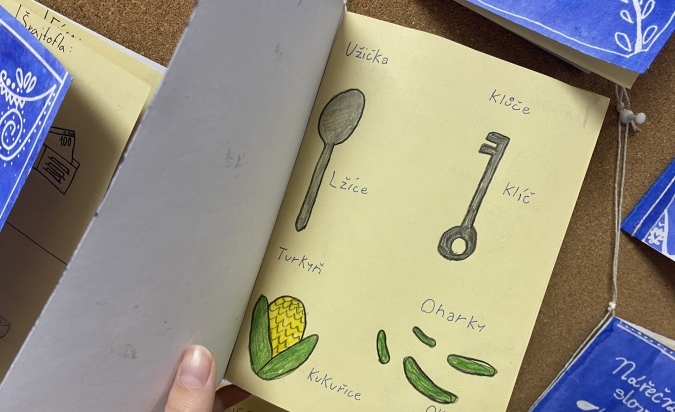 Švajtofla:
100
Užička
Lžíce
Klůče
Klíč
Turkyň
Kukuřice
Oharky
Nářeč
slov